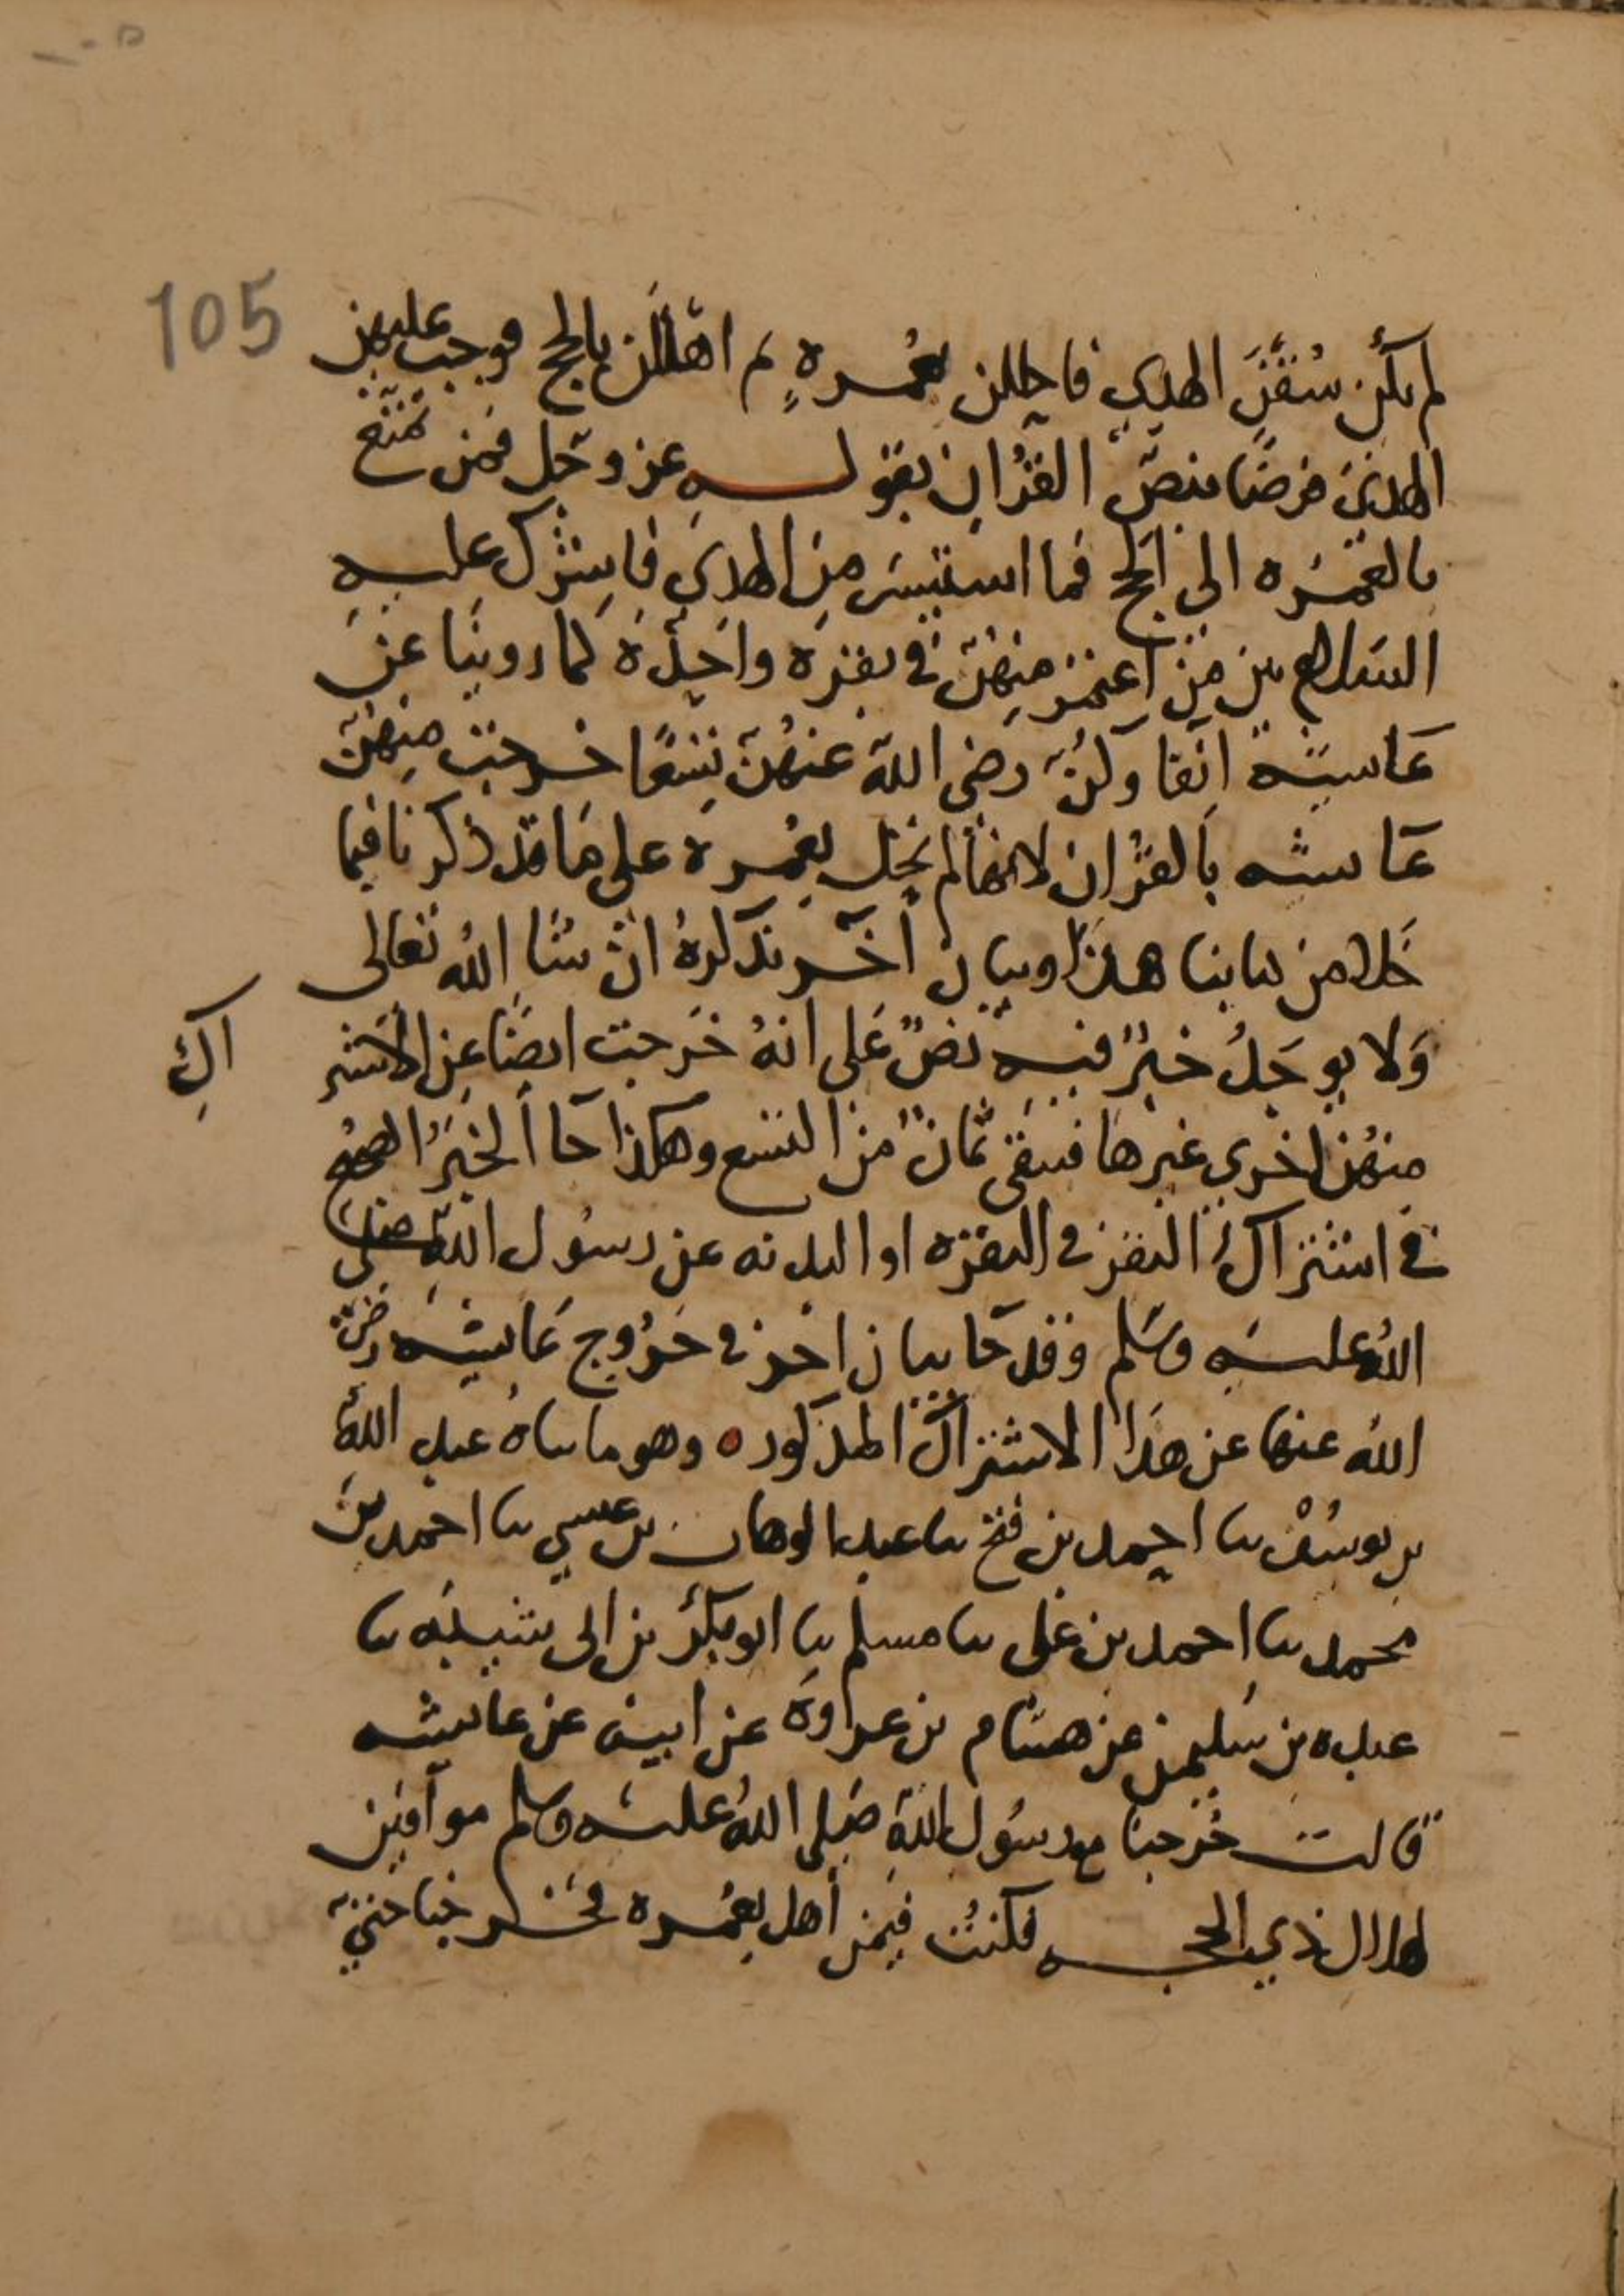 105
لم يكن سقن الهدي فاحللن بعمرة ثم اهللن بالحج فوجب عليهن
الهدي فرضا بنص القران بقوله عز وجل فمن تمتع
بالعمره الى الحج فما استيسر من الهدي فاشرك عليه
السلام بين من اعتمر منهن في بقرة واحدة كما روينا عن
عايشه انفا وكن رضي الله عنهن تسعا خرجت منهن
عايشه بالقران لانها لم تحل بعمره على ما قد ذكرنا فيما
خلا من كتابنا هذا وبيان اخر نذكره ان شا الله تعالى
ولا يوجد خبر فيه نص على انه خرجت ايضا عن الاشتر
اك
منهن اخرى غيرها فبقي ثمان من التسع وهكذا جا الخبر الصحيح
في اشتراك النفر في البقره او البدنه عن رسول الله صلى
الله عليه وسلم وقد جا بيان اخر في خروج عايشه رضي
الله عنها عن هذا الاشتراك المذكوره وهو ما ساه عبد الله
بن يوسف سا احمد بن فتح سا عبد الوهاب بن عيسى سا احمد بن
محمد سا احمد بن علي سا مسلم سا ابو بكر بن ابي شيبه سا
عبده بن سليمن عن هشام بن عروة عن ابيه عن عايشه
قالت خرجنا مع رسول الله صلى الله عليه وسلم موافين
لهلال ذي الحجه فكنت فيمن اهل بعمره فخرجنا حتى